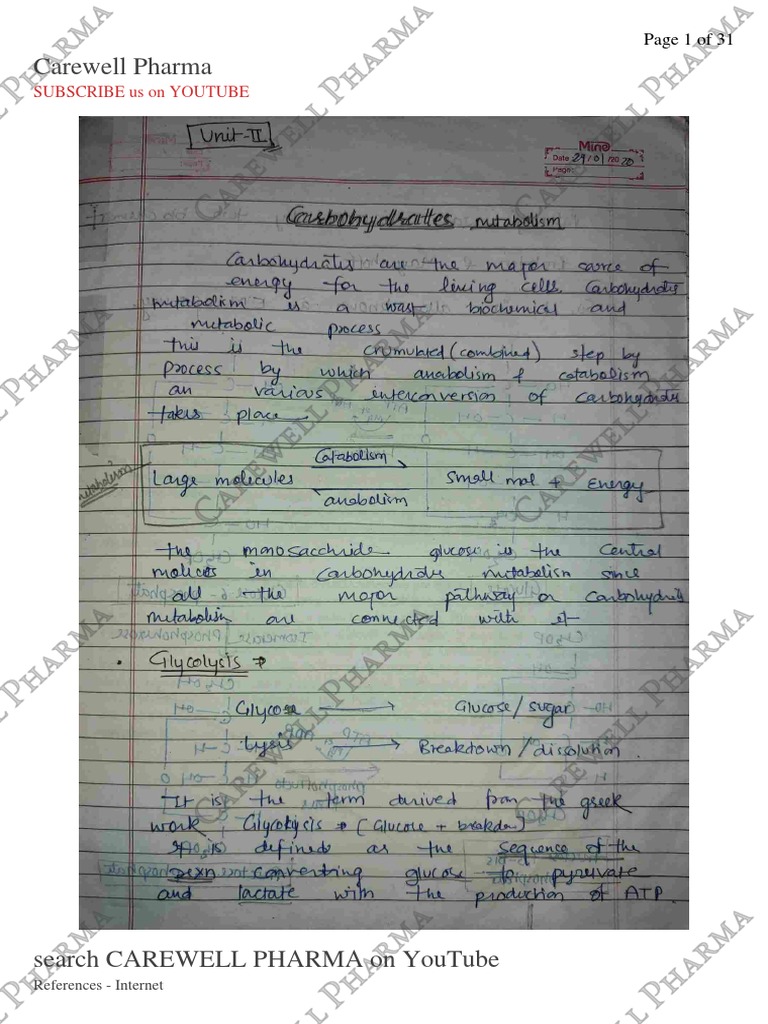 Page 1 of 31
Carewell Pharma
SUBSCRIBE us on YOUTUBE
Unit-II
Mino
Date 29/01/2020
Page:
Carbohydrates metabolism
Carbohydrates are the major sarce of
energy for the living cells. Carbohydrates
metabolism is a vast biochemical and
metabolic process
this is the crumulated (combined) step by
process by which anabolism & catabolism
an various interconversion of carbohydrates
takes place
metabolism
Catabolism
Large molecules → Small mol + Energy
anabolism
the monosacchride glucose is the central
molices in Carbohydrates metabolism since
all the major pathway on Carbohydrats
metabolism are connected with it
• Glycolysis ⇒
Glycose → Glucose/sugar
lysis → Breakdown/dissolution
It is the term derived from the greek
work Glycolysis → (Glucose + brakden)
It is defined as the sequence of the
rexn converting glucose to pyruvate
and lactate with the production of ATP.
search CAREWELL PHARMA on YouTube
References - Internet
CAREWELL PHARMA